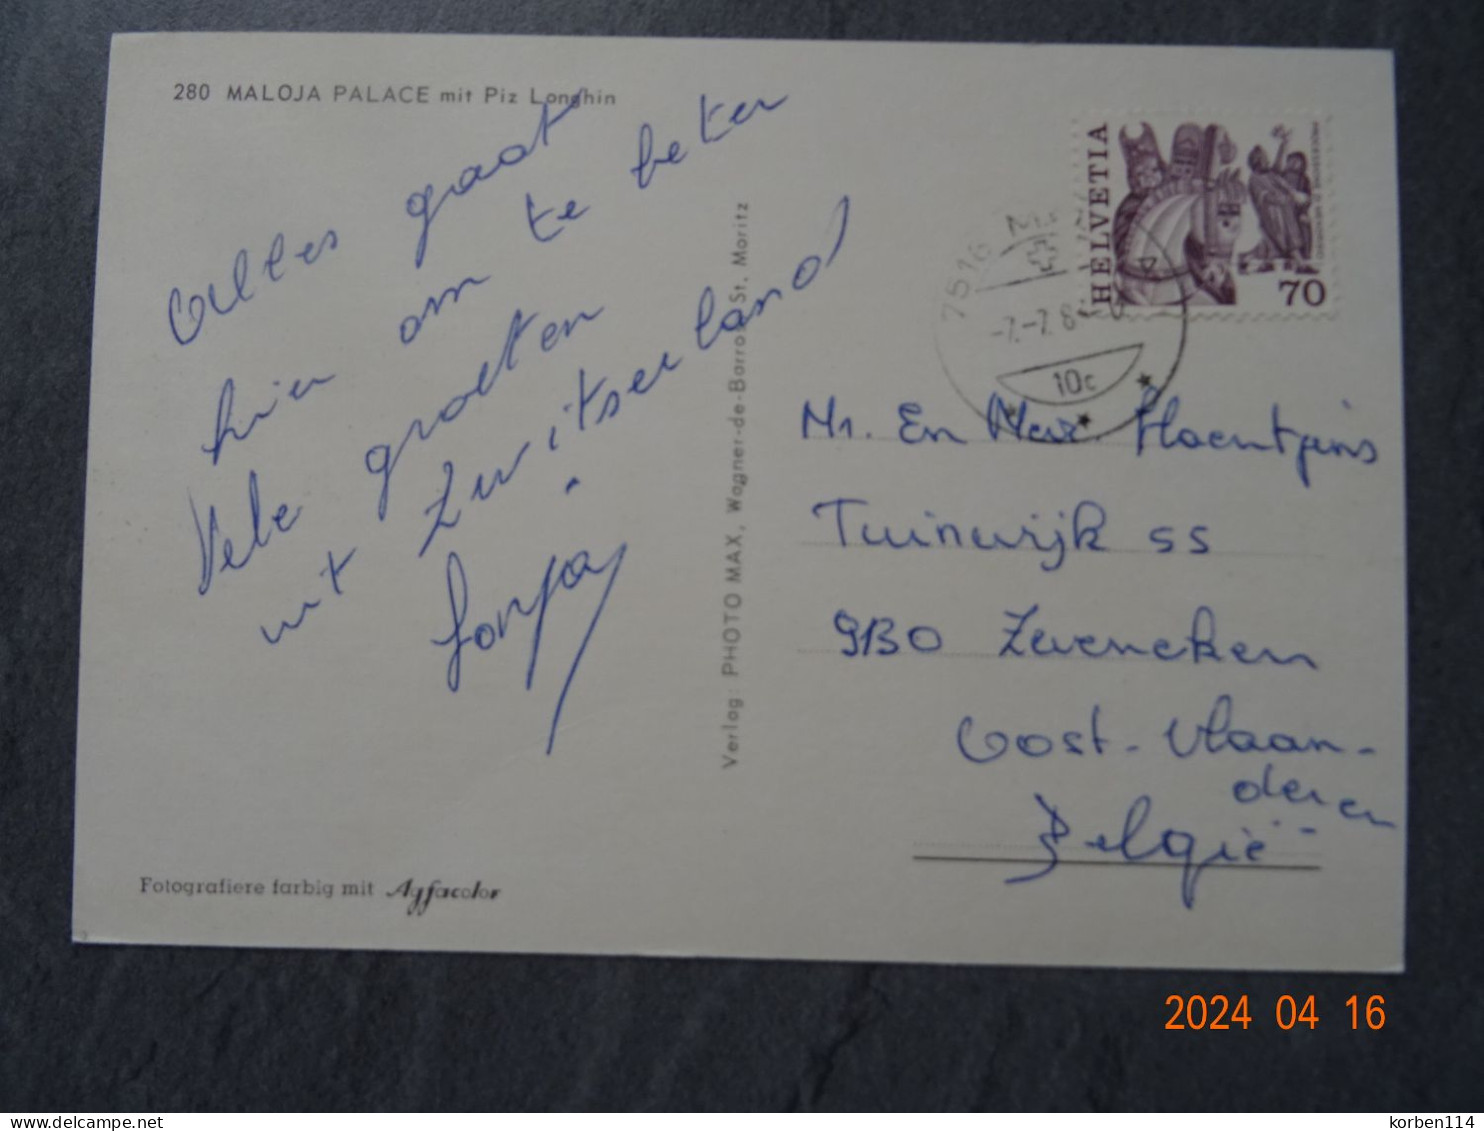 280 MALOJA PALACE mit Piz Longhin
Alles gaat
hier om te beter
Vele groeten
uit Zwitserland
Sonja
Fotografiere farbig mit Agfacolor
Verlag: PHOTO MAX, Wagner-de-Barros, St. Moritz
HELVETIA
70
7516
-7.-7.8
10c
Mr. En Mevr.
Tuinwijk 55
9130 Zeveneken
Oost-Vlaan-
deren
België
2024 04 16
www.delcampe.net
korben114